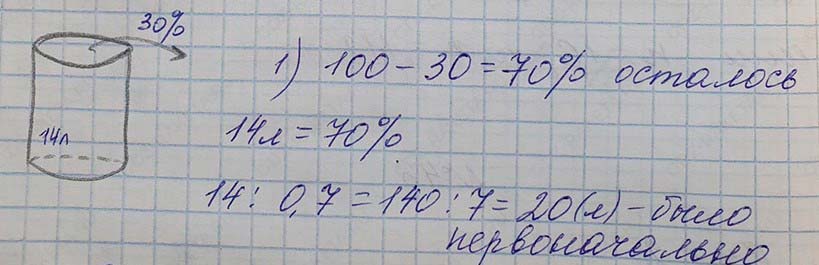 30%
14л
1) 100 - 30 = 70% осталось
14л = 70%
14 : 0,7 = 140 : 7 = 20 (л) - было
первоначально